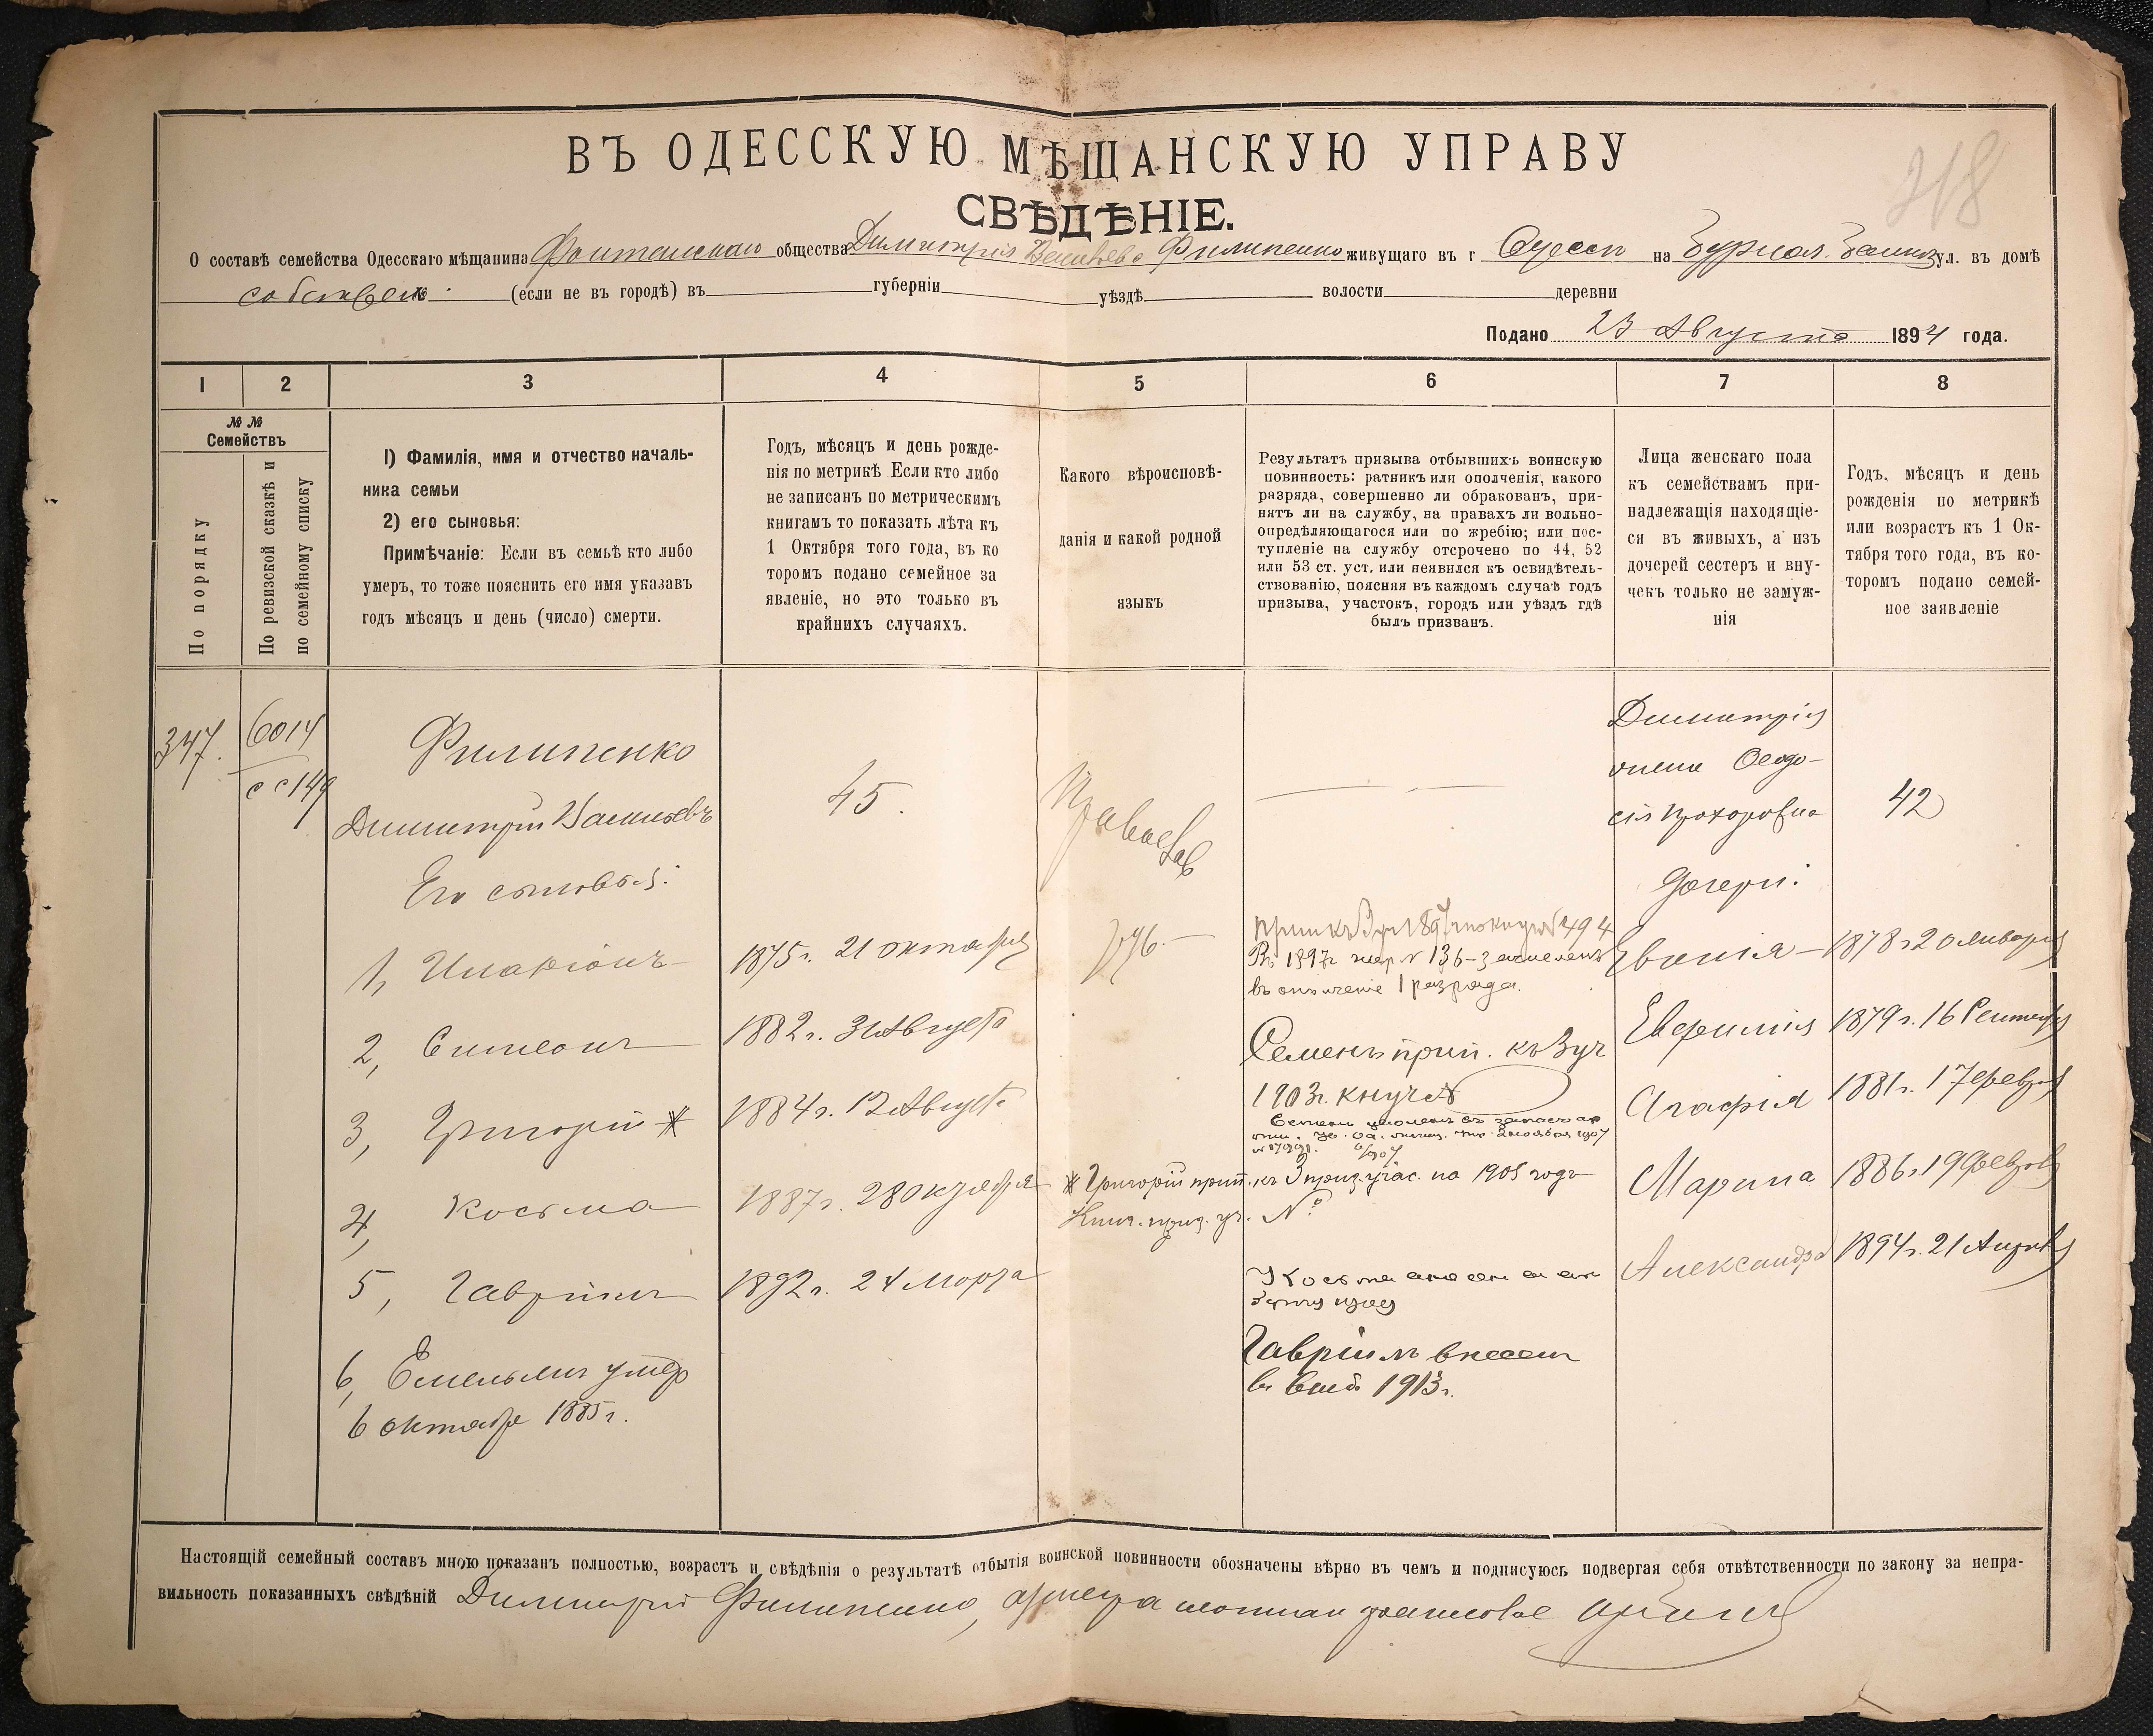 218
ВЪ ОДЕССКУЮ МѢЩАНСКУЮ УПРАВУ
СВѢДѢНІЕ.
О составѣ семейства Одесскаго мѣщанина Фонтанскаго общества Димитрія Васильева Филипенко живущаго въ г Одессѣ на ул. въ домѣ
собствен. (если не въ городѣ) въ губерніи уѣздѣ волости деревни
Подано 23 Августа 1894 года.
1 2 3 4 5 6 7 8
№ № Семействъ
По порядку
По ревизской сказкѣ и по семейному списку
1) Фамилія, имя и отчество началь-
ника семьи
2) его сыновья:
Примѣчаніе: Если въ семьѣ кто либо
умеръ, то тоже пояснить его имя указавъ
годъ мѣсяцъ и день (число) смерти.
Годъ, мѣсяцъ и день рожде-
нія по метрикѣ Если кто либо
не записанъ по метрическимъ
книгамъ то показать лѣта къ
1 Октября того года, въ ко
торомъ подано семейное за
явленіе, но это только въ
крайнихъ случаяхъ.
Какого вѣроисповѣ-
данія и какой родной
языкъ
Результатъ призыва отбывшихъ воинскую
повинность: ратникъ или ополченія, какого
разряда, совершенно ли обракованъ, при-
нятъ ли на службу, на правахъ ли вольно-
опредѣляющагося или по жребію; или пос-
тупленіе на службу отсрочено по 44, 52
или 53 ст. уст, или неявился къ освидѣтель-
ствованію, поясняя въ каждомъ случаѣ годъ
призыва, участокъ, городъ или уѣздъ гдѣ
былъ призванъ.
Лица женскаго пола
къ семействамъ при-
надлежащія находящіе-
ся въ живыхъ, а изъ
дочерей сестеръ и вну-
чекъ только не замуж-
нія
Годъ, мѣсяцъ и день
рожденія по метрикѣ
или возрастъ къ 1 Ок-
тября того года, въ ко-
торомъ подано семей-
ное заявленіе
347. 6014
с с 149
Филипенко
Димитрій Васильевъ
45.
Православ
Димитрія
жена Ѳеодо-
сія Прохоровна
42
Его сыновья:
дочери:
1, Иларіонъ 1875 г. 21 октября
рус.
494
Въ 1897 г жер № 136 - зачисленъ
въ ополченіе 1 разряда.
Евгенія 1878 г 20 января
2, Симеонъ 1882 г. 31 Августа
Семенъ прип. къ 3 уч
1903 г. кн уч №
Евфимія 1879 г. 16 Сентября
3, Григорій * 1884 г. 12 Августа
1907
Агафія 1881 г. 17 февраля
4, Косьма 1887 г. 28 октября
* Григорій прип. къ 3 приз. учас. на 1905 годъ
Книг. приз. уч. №
Марина 1886 г 19 февраля
5, Гавріилъ 1892 г. 24 марта
Косьма
Александра 1894 г. 21 Апрѣл
Гавріилъ внесен
въ 1913 г.
6, Емельянъ умер
6 октября 1885 г.
Настоящій семейный составъ мною показанъ полностью, возрастъ и свѣдѣнія о результатѣ отбытія воинской повинности обозначены вѣрно въ чемъ и подписуюсь подвергая себя отвѣтственности по закону за непра-
вильность показанныхъ свѣдѣній Димитрій Филипенко,